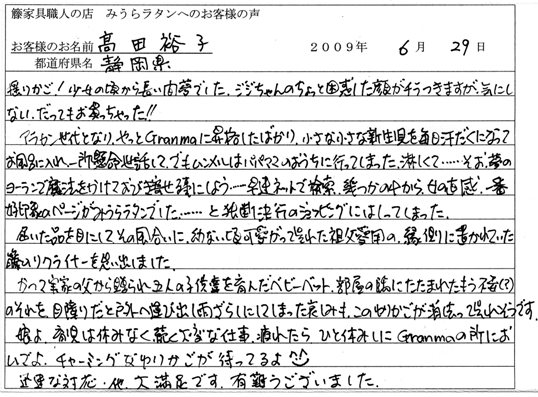 籐家具職人の店 みうらラタンへのお客様の声
お客様のお名前 高田裕子 2009年 6月 29日
都道府県名 静岡県
揺りかご!少女の頃から長い間夢でした。ジジちゃんのちょっと困惑した顔がチラつきますが、気にし
ない。だってもお買っちゃった!!
アラカン世代となり、やっとGranmaに昇格したばかり。小さな小さな新生児を毎日汗だくになって
お風呂に入れ、一所懸命世話して、でもムンメルはパパママのおうちに行ってしまった。淋しくて……そお、夢の
ヨーランで魔法をかけておびき寄せる様にしよう。一発速ネットで検索。幾つかの中から、女の直感。一番
好印象のページがみうらラタンでした……と独断決行のショッピングにはしってしまった。
届いた品を目にしてその風合いに、幼ない頃可愛がって呉れた祖父愛用の、縁側に置かれていた
籐のリクライナーを思い出しました。
かつて実家の父から贈られ五人の子供達を育んだベビーベット。部屋の隅にたたまれたもう不要(?)
のそれを、目障りだと戸外へ運び出し雨ざらしにしてしまった哀しみも、このゆりかごが消して呉れそうです。
娘よ、育児は休みなく続く大変な仕事。疲れたら、ひと休みしにGranmaの所にお
いでよ。チャーミングなゆりかごが待ってるよ
迅速な対応・他、大満足です。有難うございました。